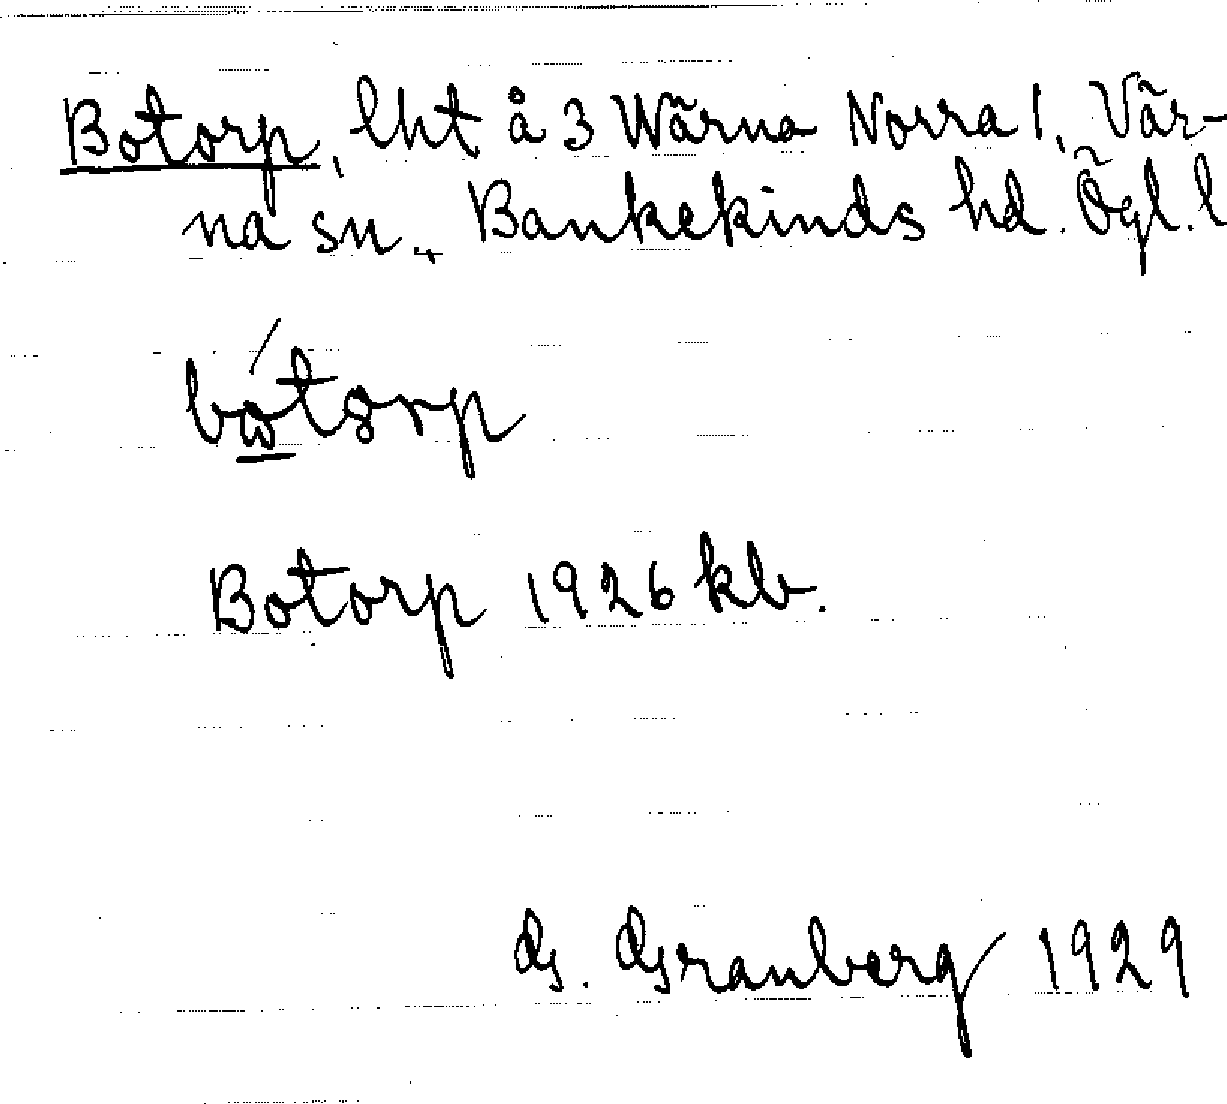 Botorp, lht å 3 Wärna Norra 1, Vär-
na sn., Bankekinds hd. Ögl. l
bótorp
Botorp 1926 kb.
G. Granberg 1929